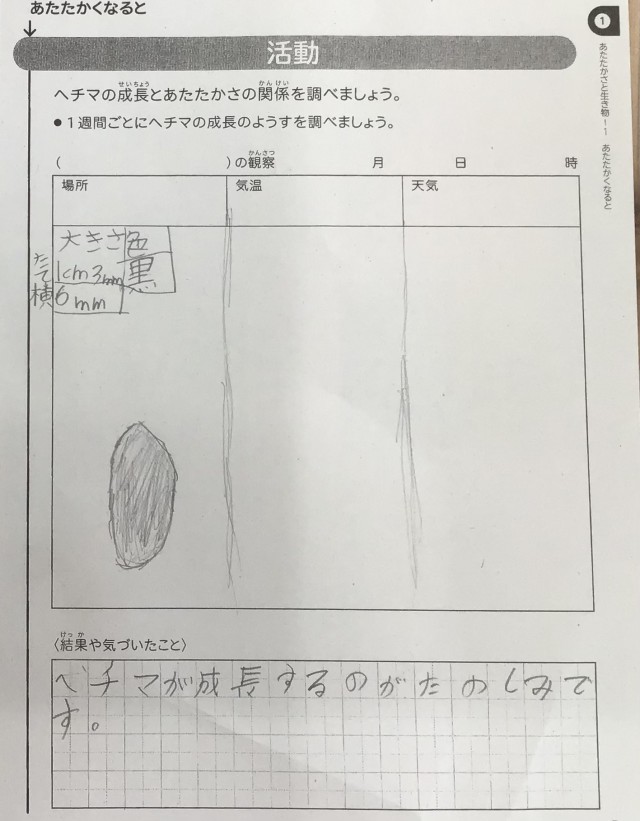 あたたかくなると
1
あたたかさと生き物！1 あたたかくなると
活動
ヘチマの成長とあたたかさの関係を調べましょう。
●1週間ごとにヘチマの成長のようすを調べましょう。
( )の観察 月 日 時
場所 気温 天気
大きさ 色
たて 1cm3mm 黒
横 6mm
〈結果や気づいたこと〉
ヘチマが成長するのがたのしみで
す。